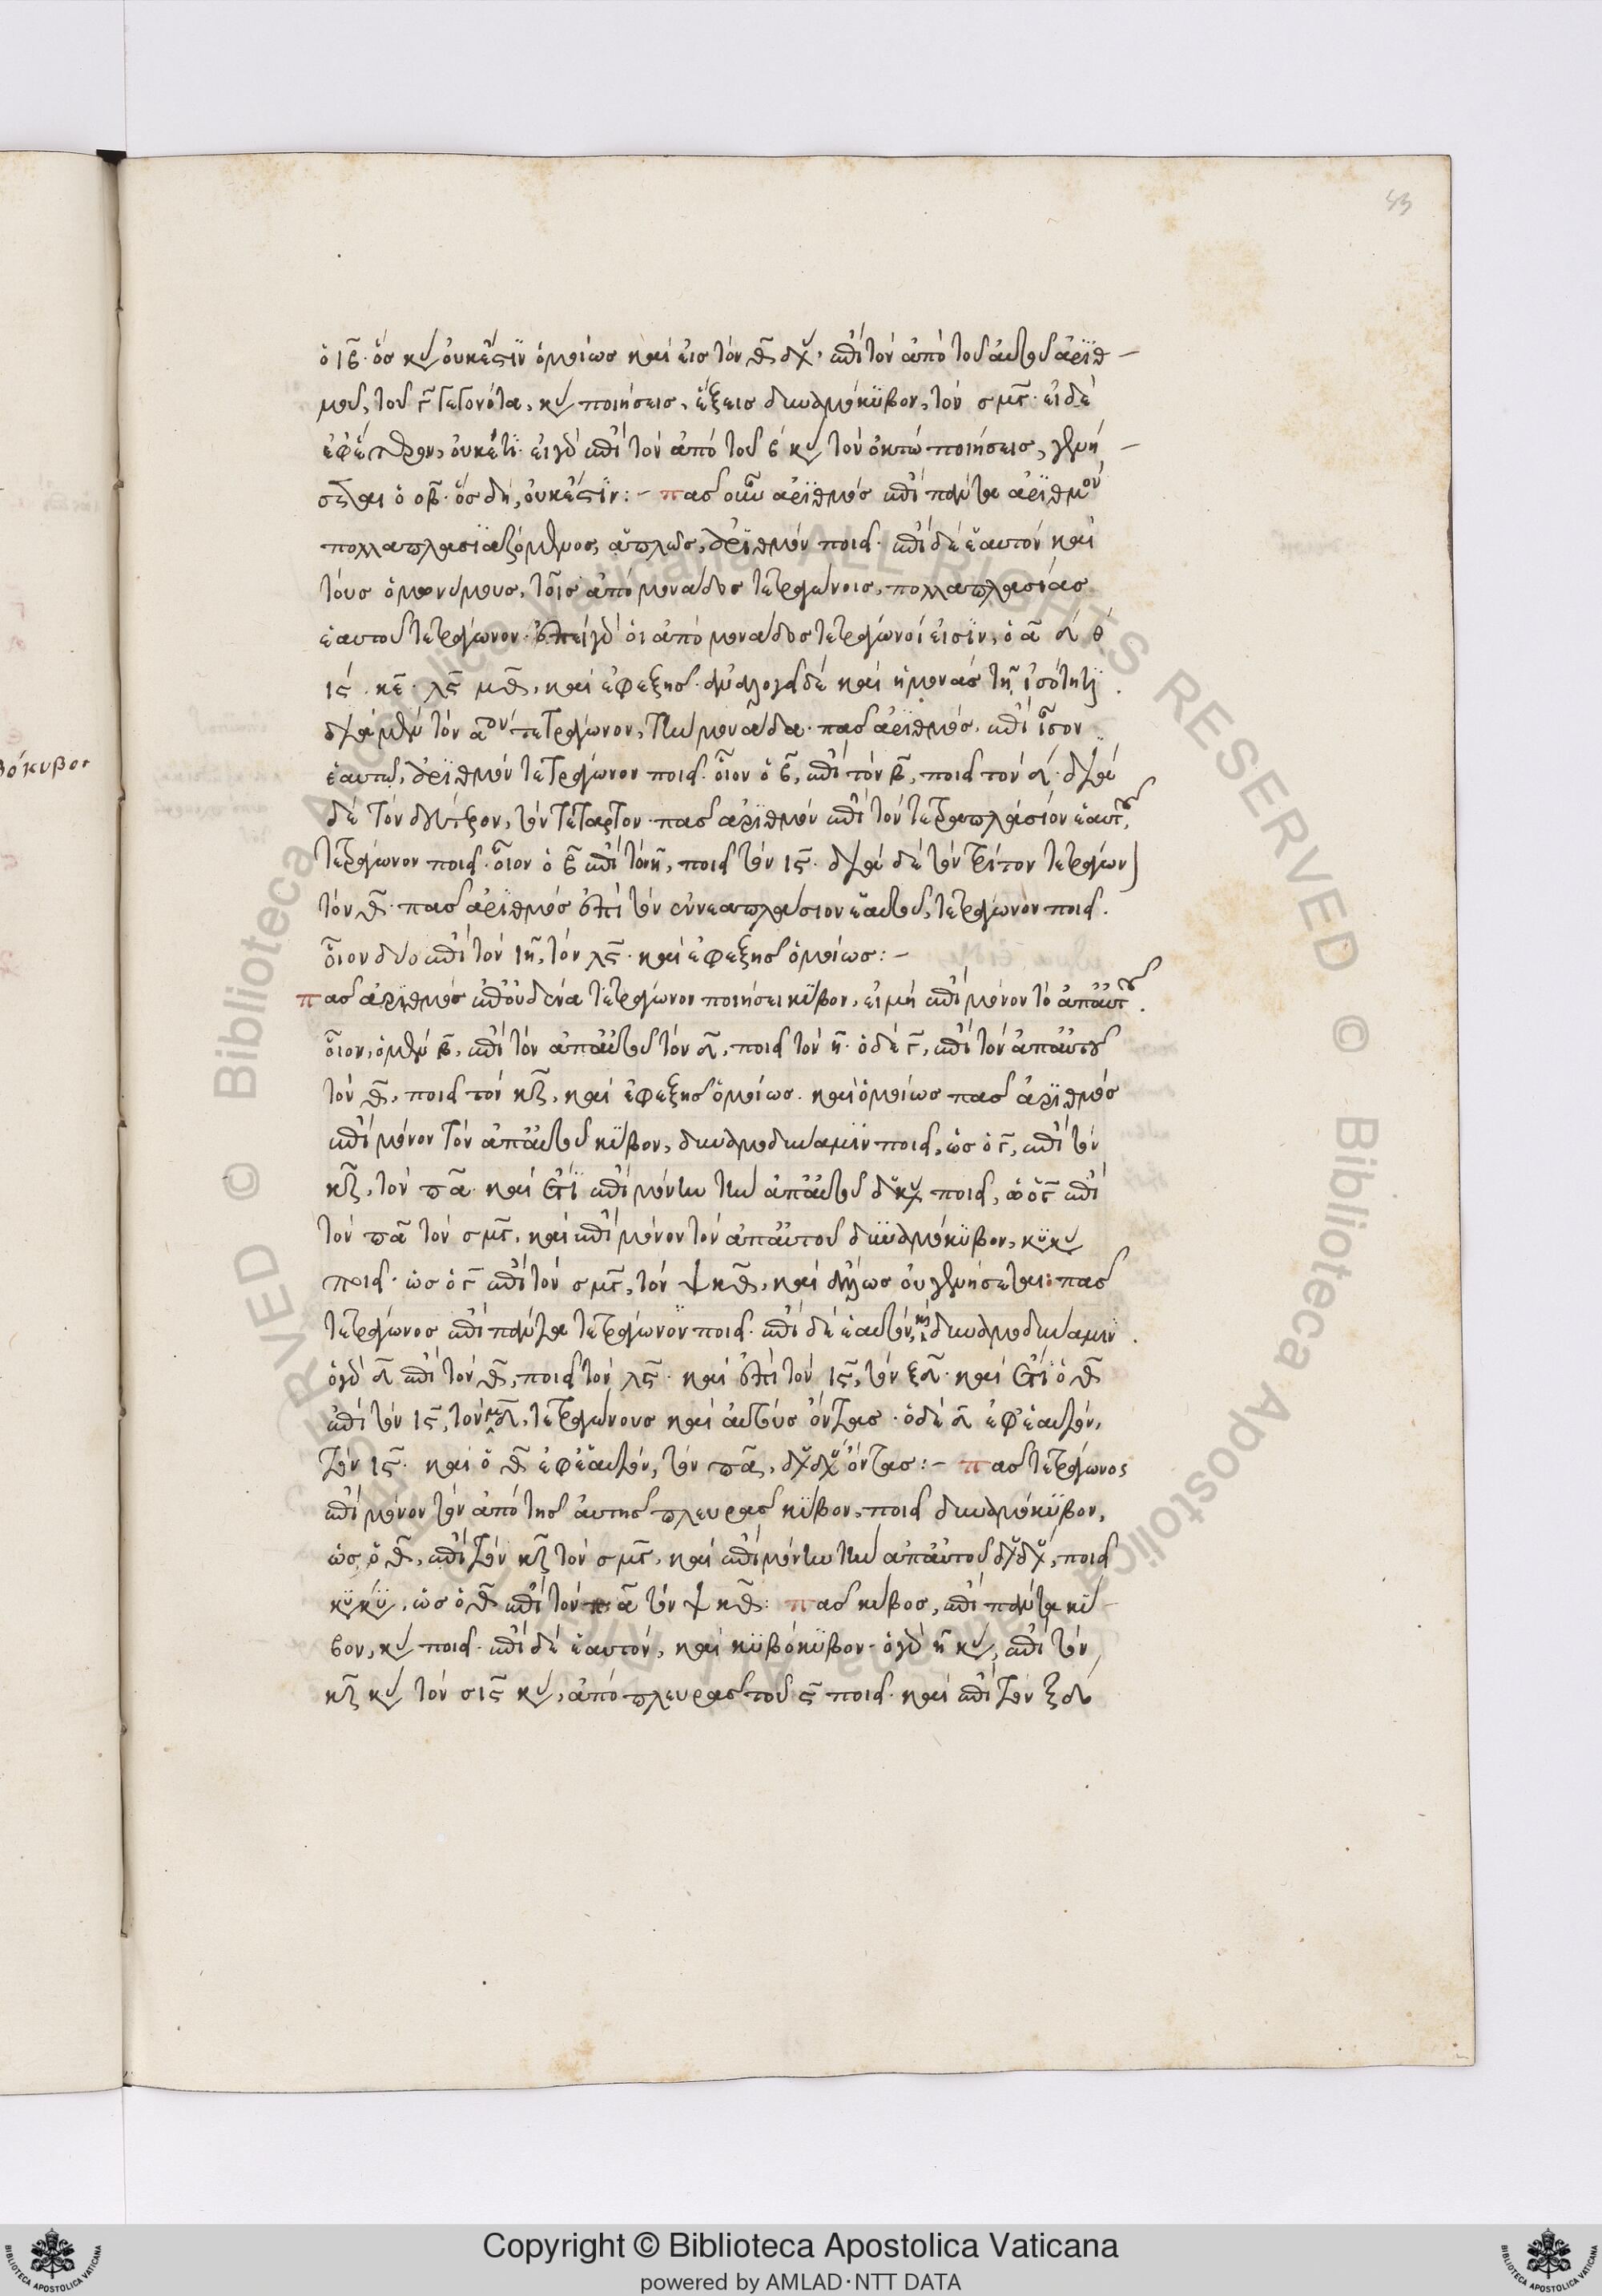 43
ὁ ιβ· ὅς κυ οὐκ ἔστιν ὁμοίως καὶ εἰς τὸν θ δυ, ἐπὶ τὸν ἀπὸ τοῦ αὐτοῦ ἀριθ
μοῦ, τοῦ γ γεγονότα, κυ ποιήσεις, ἕξεις δυναμόκυβον, τὸν σμγ· εἰ δὲ
ἐφ' ἕτερον, οὐκέτι· εἰ γὰρ ἐπὶ τὸν ἀπὸ τοῦ β κυ τὸν ὀκτὼ ποιήσεις, γενή
σεται ὁ οβ· ὅς δὴ, οὐκ ἔστιν :- πᾶς οὖν ἀριθμὸς ἐπὶ πάντα ἀριθμὸν
πολλαπλασιαζόμενος, ἁπλῶς, ἀριθμὸν ποιεῖ· ἐπὶ δὲ ἑαυτὸν καὶ
τοὺς ὁμωνύμους, τοῖς ἀπὸ μονάδος τετραγώνοις, πολλαπλασίας
ἑαυτοῦ τετράγωνον· ἐπεὶ γὰρ οἱ ἀπὸ μονάδος τετράγωνοί εἰσιν, ὁ α δ θ
ις · κε · λς μθ, καὶ ἐφεξῆς· ἀναλογεῖ δὲ καὶ ἡ μονὰς τῇ ἰσότητι
διὰ μὲν τὸν αον τετράγωνον, τὴν μονάδα· πᾶς ἀριθμὸς, ἐπὶ ἴσον
βόκυβος
ἑαυτῷ, ἀριθμὸν τετράγωνον ποιεῖ· οἷον ὁ β, ἐπὶ τὸν β, ποιεῖ τὸν δ· διὰ
δὲ τὸν δεύτερον, τὸν τέταρτον πᾶς ἀριθμὸν ἐπὶ τὸν τετραπλάσιον ἑαυτοῦ,
τετράγωνον ποιεῖ· οἷον ὁ β ἐπὶ τὸν η, ποιεῖ τὸν ις· διὰ δὲ τὸν τρίτον τετράγωνον
τὸν θ· πᾶς ἀριθμὸς ἐπὶ τὸν ἐννεαπλάσιον ἑαυτοῦ, τετράγωνον ποιεῖ.
οἷον δύο ἐπὶ τὸν ιη, τὸν λς· καὶ ἐφεξῆς ὁμοίως :-
πᾶς ἀριθμὸς ἐπ' οὐδένα τετράγωνον ποιήσει κύβον, εἰ μὴ ἐπὶ μόνον τὸ ἀπ' αὐτοῦ.
οἷον, ὁ μὲν β, ἐπὶ τὸν ἀπ' αὐτοῦ τὸν δ, ποιεῖ τὸν η· ὁ δὲ γ, ἐπὶ τὸν ἀπ' αὐτοῦ
τὸν θ, ποιεῖ τὸν κζ, καὶ ἐφεξῆς ὁμοίως. καὶ ὁμοίως πᾶς ἀριθμὸς
ἐπὶ μόνον τὸν ἀπ' αὐτοῦ κύβον, δυναμοδύναμιν ποιεῖ, ὡς ὁ γ, ἐπὶ τὸν
κζ, τὸν πα· καὶ ἔτι ἐπὶ μόνην τὴν ἀπ' αὐτοῦ δυκυ ποιεῖ, ὡς ὁ γ ἐπὶ
τὸν πα τὸν σμγ, καὶ ἐπὶ μόνον τὸν ἀπ' αὐτοῦ δυναμόκυβον, κυκυ
ποιεῖ· ὡς ὁ γ ἐπὶ τὸν σμγ, τὸν ψκθ, καὶ ἄλλως οὐ γενήσεται: πᾶς
τετράγωνος ἐπὶ πάντα τετράγωνον ποιεῖ· ἐπὶ δὲ ἑαυτὸν, καὶ δυναμοδύναμιν.
ὁ γὰρ δ ἐπὶ τὸν θ, ποιεῖ τὸν λς· καὶ ἐπὶ τὸν ις, τὸν ξδ· καὶ ἔτι ὁ θ
ἐπὶ τὸν ις, τὸν ρμδ, τετραγώνους καὶ αὐτοὺς ὄντας· ὁ δὲ δ ἐφ' ἑαυτὸν,
τὸν ις· καὶ ὁ θ ἐφ' ἑαυτὸν, τὸν πα, δυδυ ὄντας :- πᾶς τετράγωνος
ἐπὶ μόνον τὸν ἀπὸ τῆς αὐτῆς πλευρᾶς κύβον, ποιεῖ δυναμόκυβον,
ὡς ὁ θ, ἐπὶ τὸν κζ τὸν σμγ, καὶ ἐπὶ μόνην τὴν ἀπ' αὐτοῦ δυδυ, ποιεῖ
κυκυ, ὡς ὁ θ ἐπὶ τὸν πα τὸν ψκθ: πᾶς κύβος, ἐπὶ πάντα κύ
βον, κυ ποιεῖ· ἐπὶ δὲ ἑαυτὸν, καὶ κυβόκυβον· ὁ γὰρ η κυ, ἐπὶ τὸν
κζ κυ τὸν σις κυ, ἀπὸ πλευρᾶς τοῦ ς ποιεῖ· καὶ ἐπὶ τὸν ξδ
Copyright © Biblioteca Apostolica Vaticana
powered by AMLAD·NTT DATA